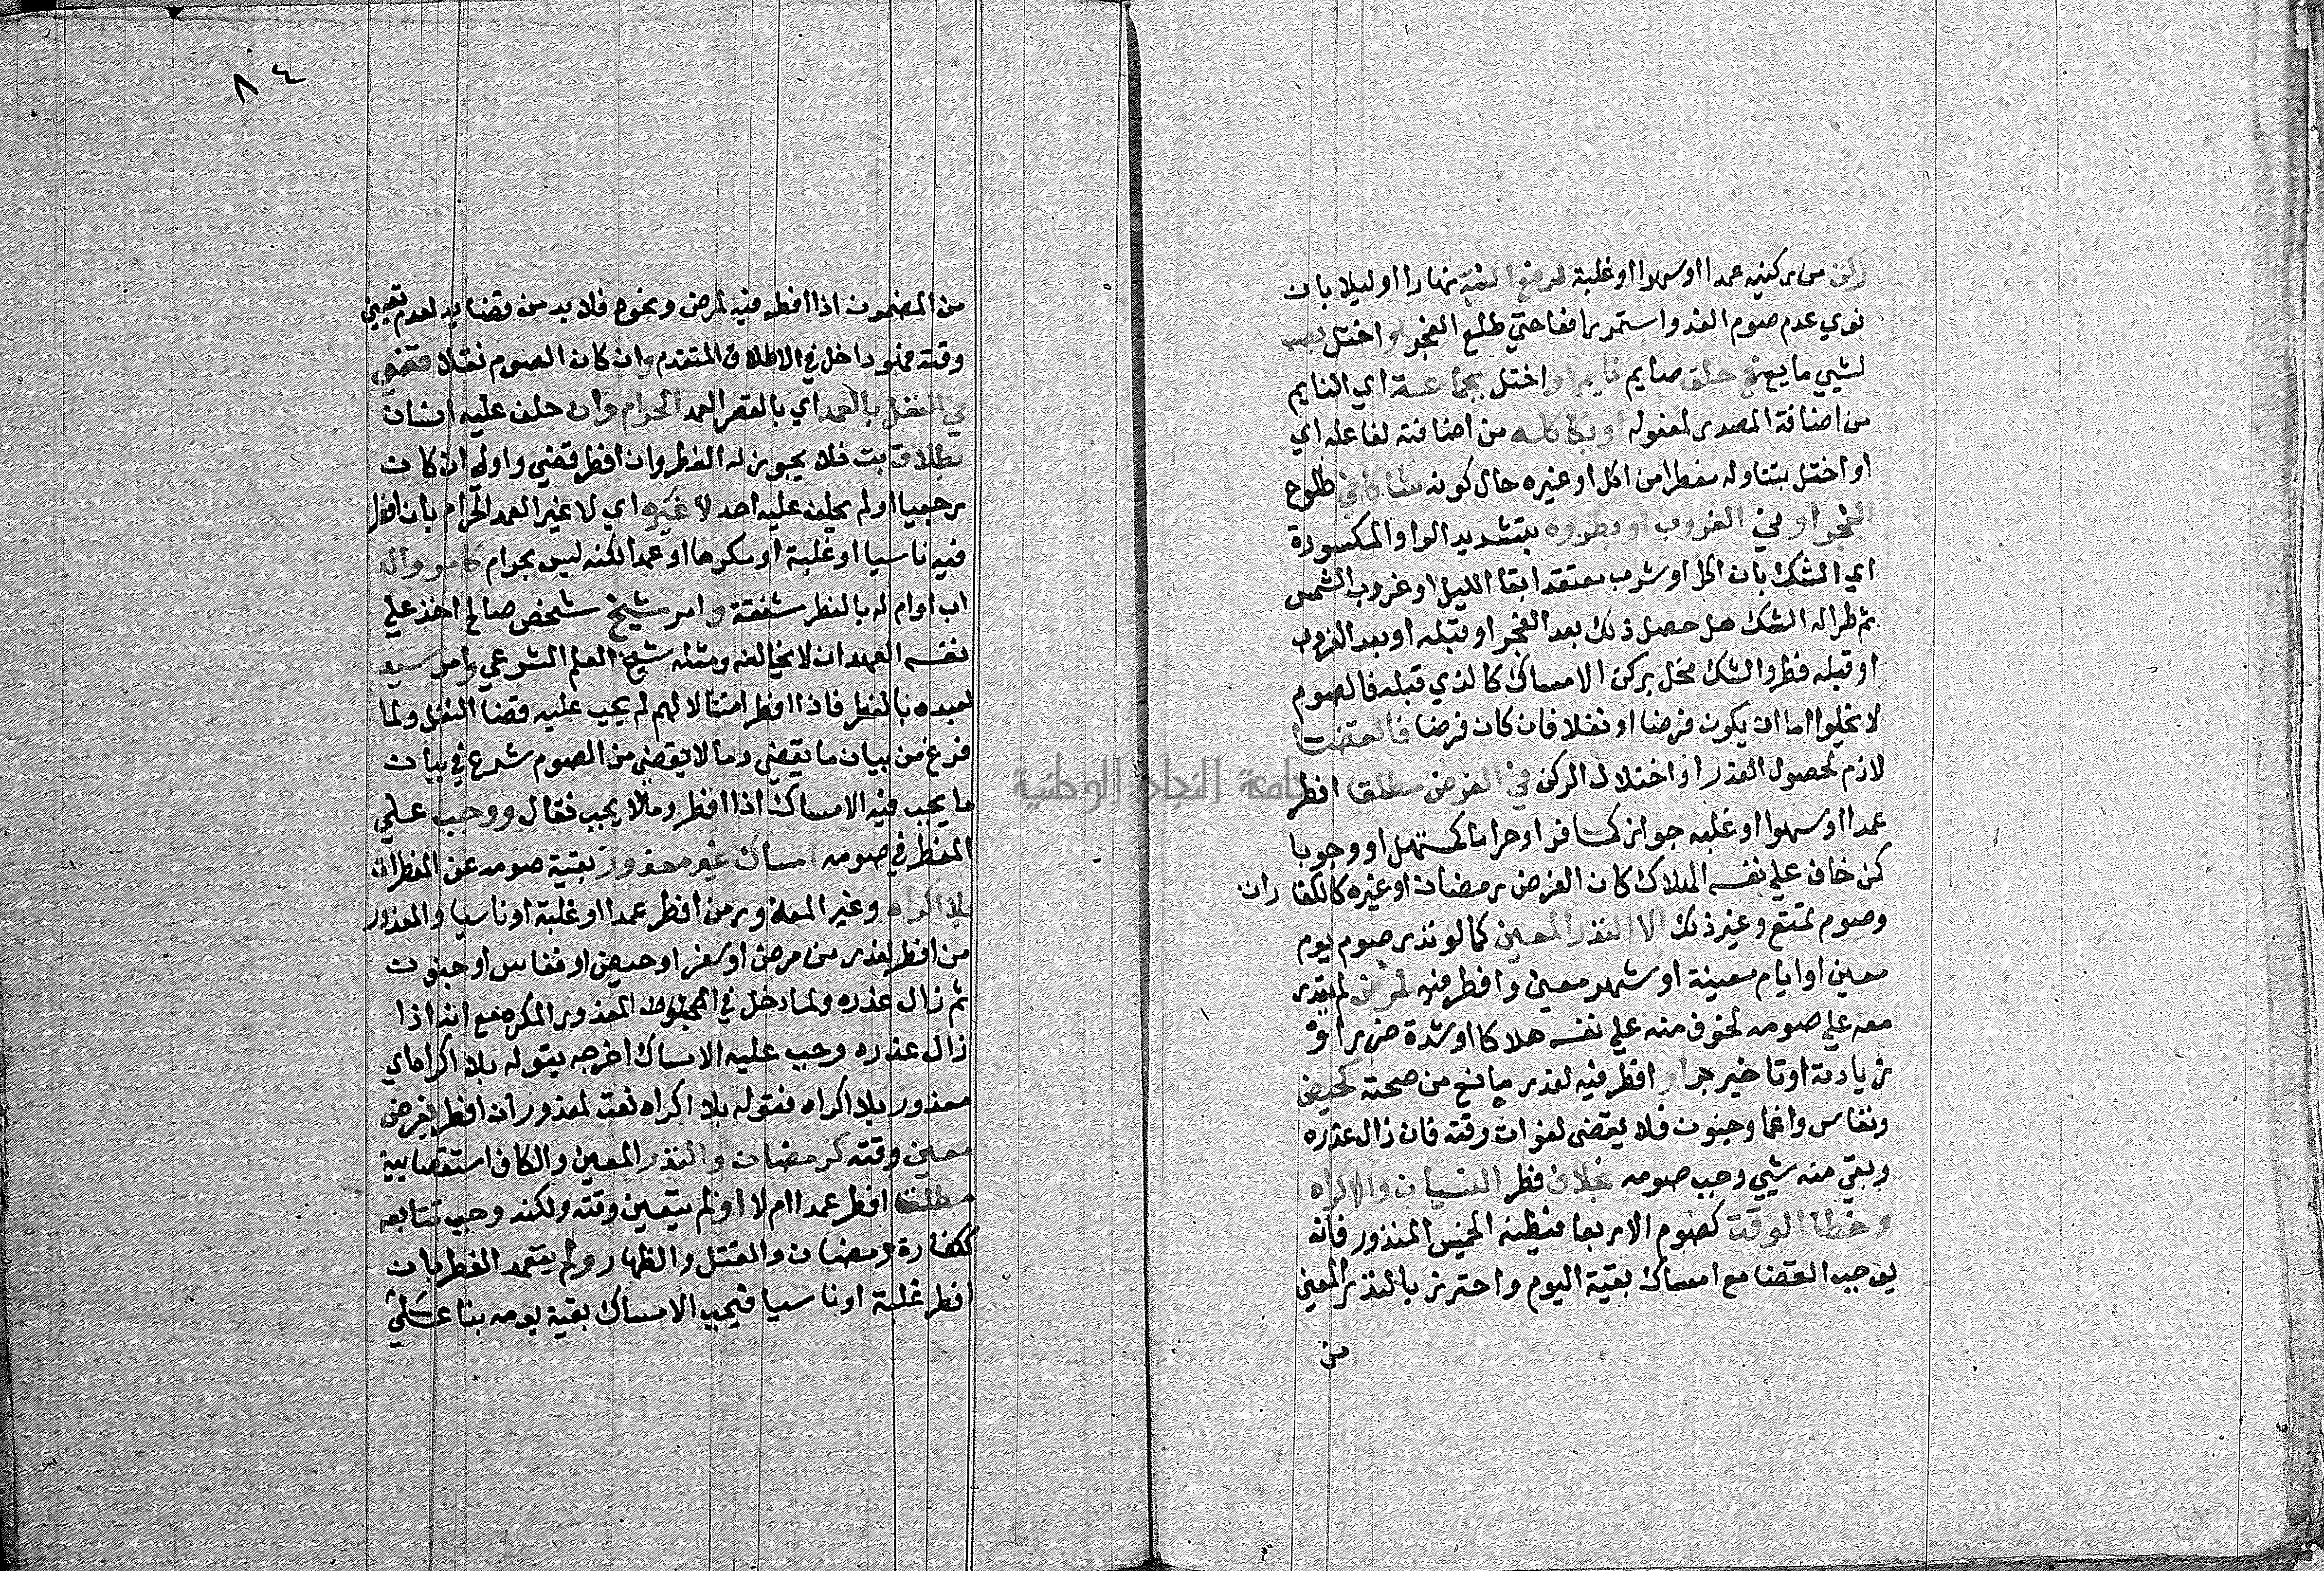 ركن من ركنيه عمدا او سهوا او غلبة كرفع النية نهارا او ليلا بان
نوي عدم صوم الغد واستمر رافعا حتي طلع الفجر او اختل بصب
لشيي مايع في حلق صايم نايم او اختل بجماعه اي النايم
من اضافة المصدر لمفعوله او بكاكله من اضافته لفاعله اي
او اختل بتناوله مفطرا من اكل او غيره حال كونه شاكا في طلوع
الفجر او في الغروب او بطروه بتشديد الواو المكسورة
اي الشك بان اكل او شرب معتقدا بقا الليل او غروب الشمس
ثم طرا له الشك هل حصل ذلك بعد الفجر او قبله او بعد الغروب
او قبله فطرو الشك مخل بركن الامساك كالذي قبله فالصوم
لا يخلوا اما ان يكون فرضا او نفلا فان كان فرضا فالقضا
لازم لحصول العذر او اختلال الركن في الفرض مطلقا افطر
عمدا او سهوا او غلبه جوازا كمسافر او حراما كمنتهل او وجوبا
كمن خاف علي نفسه الهلاك كان الفرض رمضان او غيره كالكفارات
وصوم تمتع وغير ذلك الا النذر المعين كما لو نذر صوم يوم
معين او ايام معينة او شهر معين وافطر فيه لمرض لم يقدر
معه علي صومه لخوف منه علي نفسه هلاكا او شدة ضرر او
زيادته او تاخير برا او افطر فيه لعذر مانع من صحته كحيض
ونفاس واغما وجنون فلا يقضي لفوات وقته فان زال عذره
وبقي منه شيي وجب صومه بخلاف فطر النسيان والاكراه
وخطا الوقت كصوم الاربعا فيظنه الخميس المنذور فانه
يوجب القضا مع امساك بقية اليوم واحترز بالنذر المعين
من
٨٤
من المضمون اذا افطر فيه لمرض ونحوه فلا بد من قضايه لعدم تعيين
وقته فهو داخل في الاطلاق المتقدم وان كان الصوم نفلا قضي
في النفل بالعمد اي بالفطر العمد الحرام وان حلف عليه انسان
بطلاق بت فلا يجوز له الفطر وان افطر قضي واولي ان كان
رجعيا او لم يحلف عليه احد لا غيره اي لا غير العمد الحرام بان افطر
فيه ناسيا او غلبة او مكرها او عمدا لكنه ليس بحرام كامر والد
اب او ام له بالفطر شفقة وامر شيخ شخص صالح اخذ علي
نفسه العهد ان لا يخالفه ومثله شيخ العلم الشرعي وامر سيد
لعبده بالفطر فاذا افطر امتثالا لهم لم يجب عليه قضا النفل ولما
فرغ من بيان ما يقضي وما لا يقضي من الصوم شرع في بيان
ما يجب فيه الامساك اذا افطر وما لا يجب فقال ووجب علي
المفطر في صومه امساك غير معذور بقية صومه عن المفطرات
بلا اكراه وغير المعذور من افطر عمدا او غلبة او ناسيا والمعذور
من افطر لعذر من مرض او سفر او حيض او نفاس او جنون
ثم زال عذره ولما دخل في المعذور المكره مع انه اذا
زال عذره وجب عليه الامساك اخرجه بقوله بلا اكراه اي
معذور بلا اكراه فقوله بلا اكراه نعت لمعذور ان افطر بفرض
معين وقته كرمضان والنذر المعين والكاف استقصايية
مطلقا افطر عمدا ام لا او لم يتعين وقته ولكنه وجب تتابعه
ككفارة رمضان والقتل والظهار ولم يتعمد الفطر بان
افطر غلبة او ناسيا فيجب الامساك بقية يومه بنا علي
جامعة النجاح الوطنية